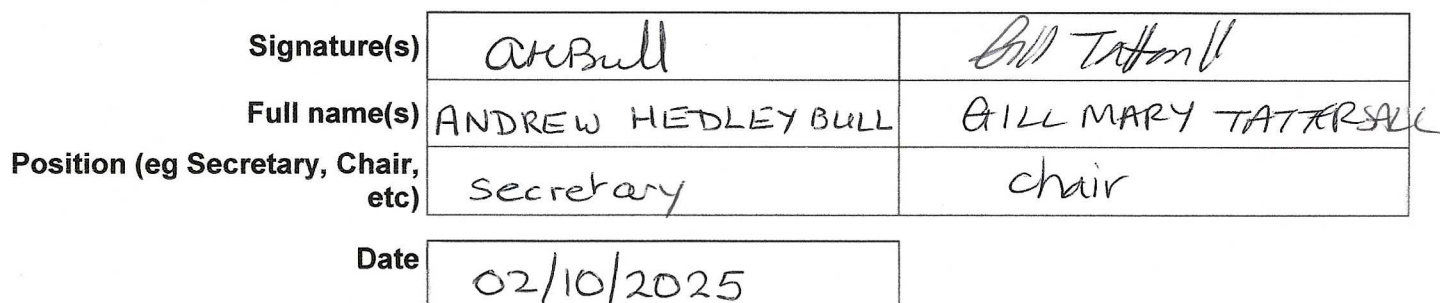 Signature(s) AHBull Gill Tattersall
Full name(s) ANDREW HEDLEY BULL GILL MARY TATTERSALL
Position (eg Secretary, Chair, etc) secretary chair
Date 02/10/2025